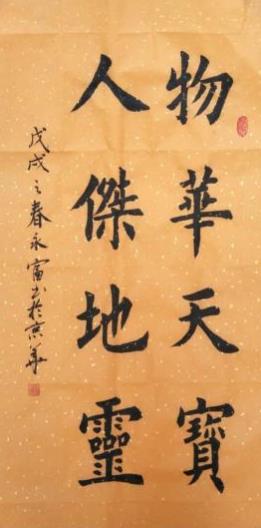 物華天寶
人傑地靈
戊戌之春永富书於京華